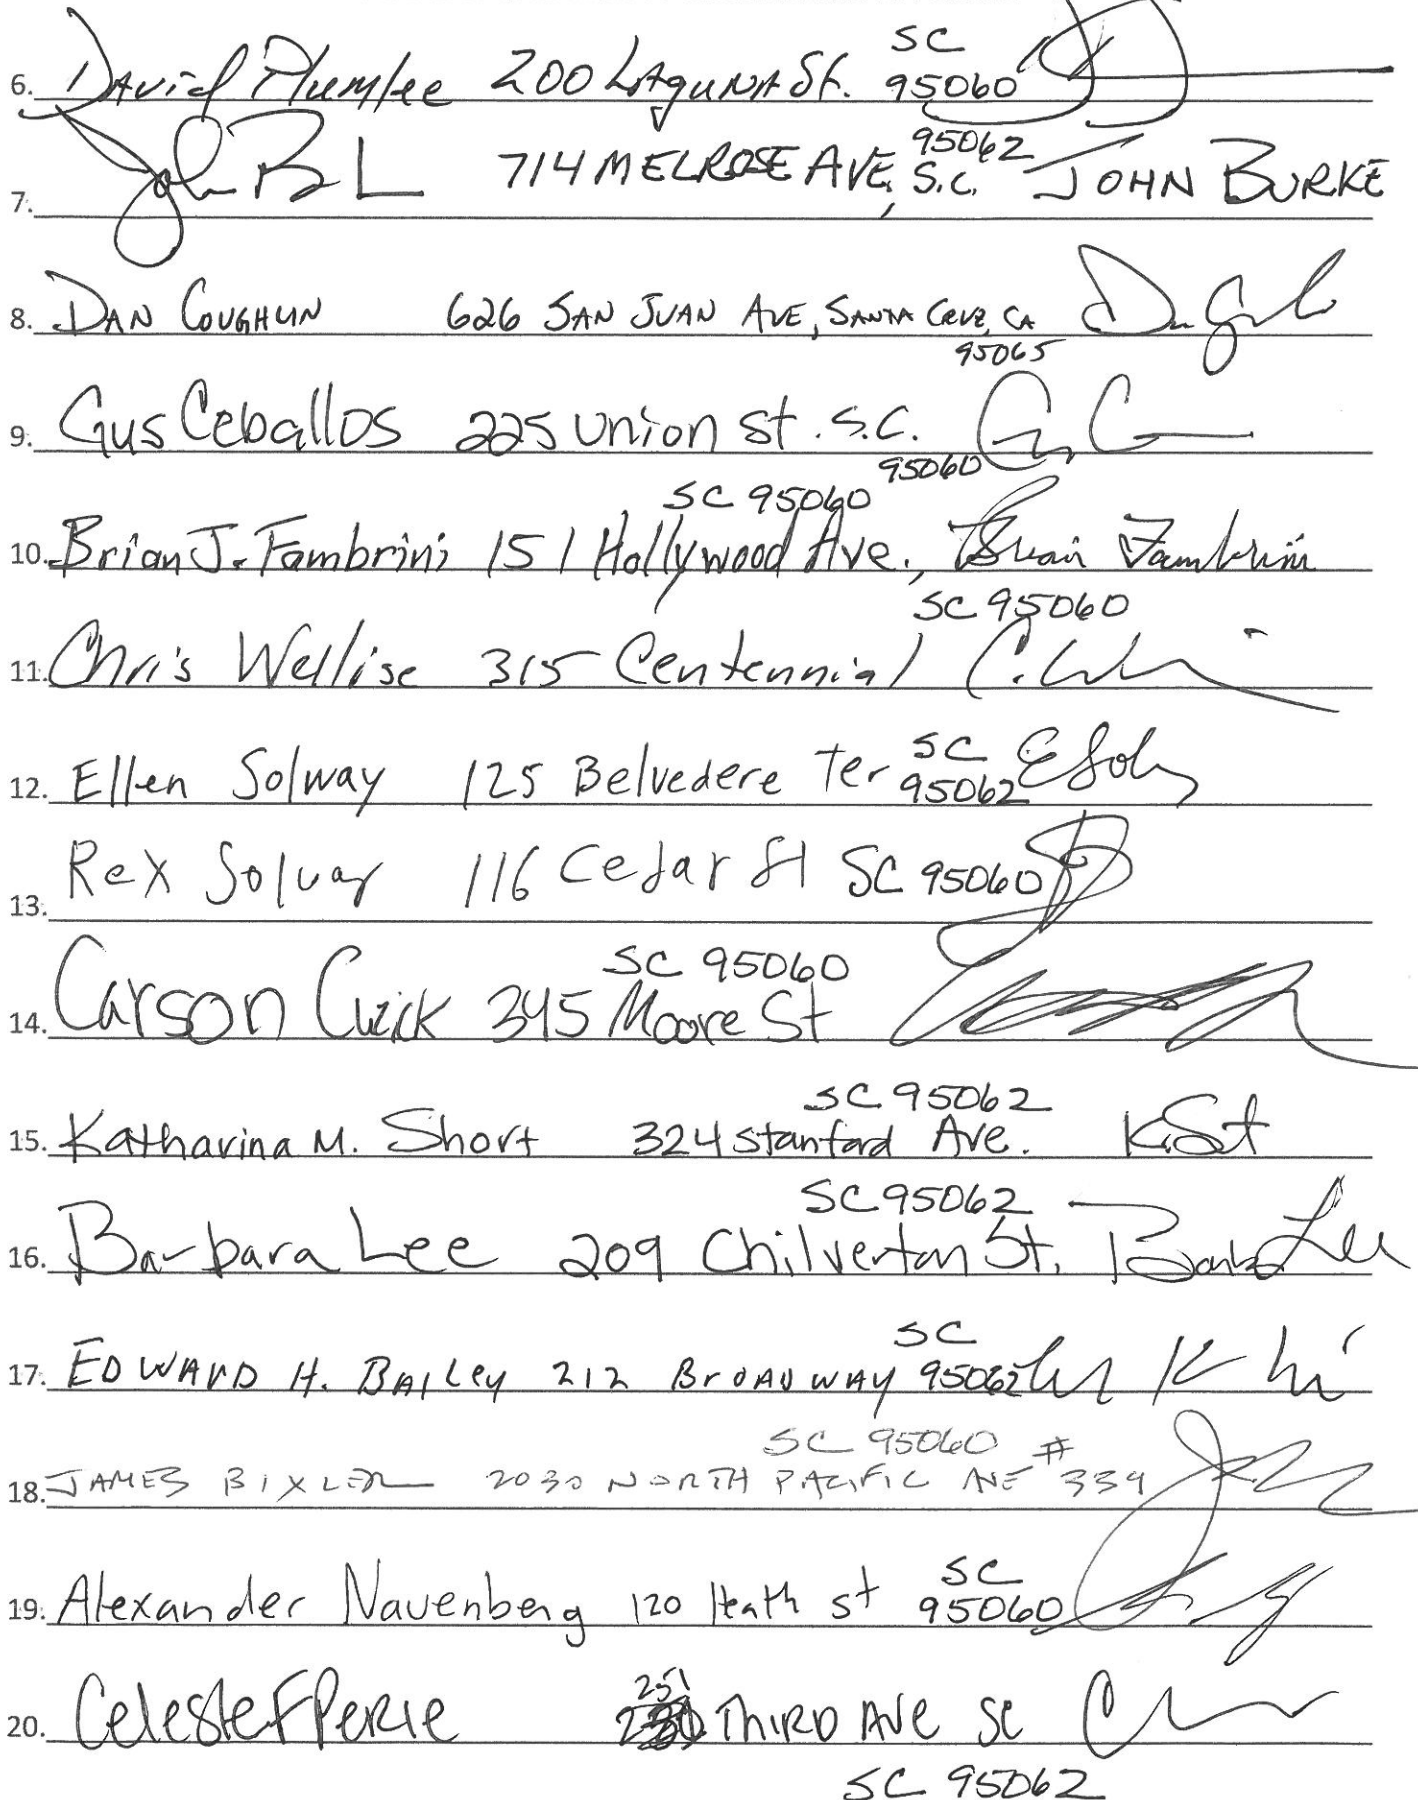 SC
6. David Plumlee 200 Laguna St. 95060
95062
7. 714 MELROSE AVE, S.C. JOHN BURKE
8. DAN COUGHLIN 626 SAN JUAN AVE, SANTA CRUZ, CA
95065
9. Gus Ceballos 225 Union St. S.C.
95060
SC 95060
10. Brian J. Fambrini 151 Hollywood Ave., Brian Fambrini
SC 95060
11. Chris Wellise 315 Centennial
SC
12. Ellen Solway 125 Belvedere Ter 95062
13. Rex Solway 116 Cedar St SC 95060
SC 95060
14. Carson 345 Moore St
SC 95062
15. Katharina M. Short 324 Stanford Ave.
SC 95062
16. Barbara Lee 209 Chilverton St. Barbara Lee
SC
17. EDWARD H. BAILEY 212 BROADWAY 95062
SC 95060 #
18. JAMES BIXLER 2030 NORTH PACIFIC AVE 339
SC
19. Alexander Nauenberg 120 Heath St 95060
251
20. Celeste F Perie THIRD AVE SC
SC 95062